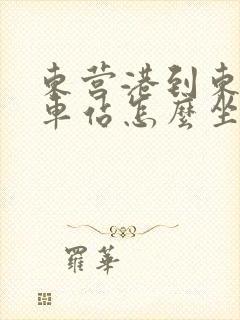 東营港到東
車估怎麼坐
羅華